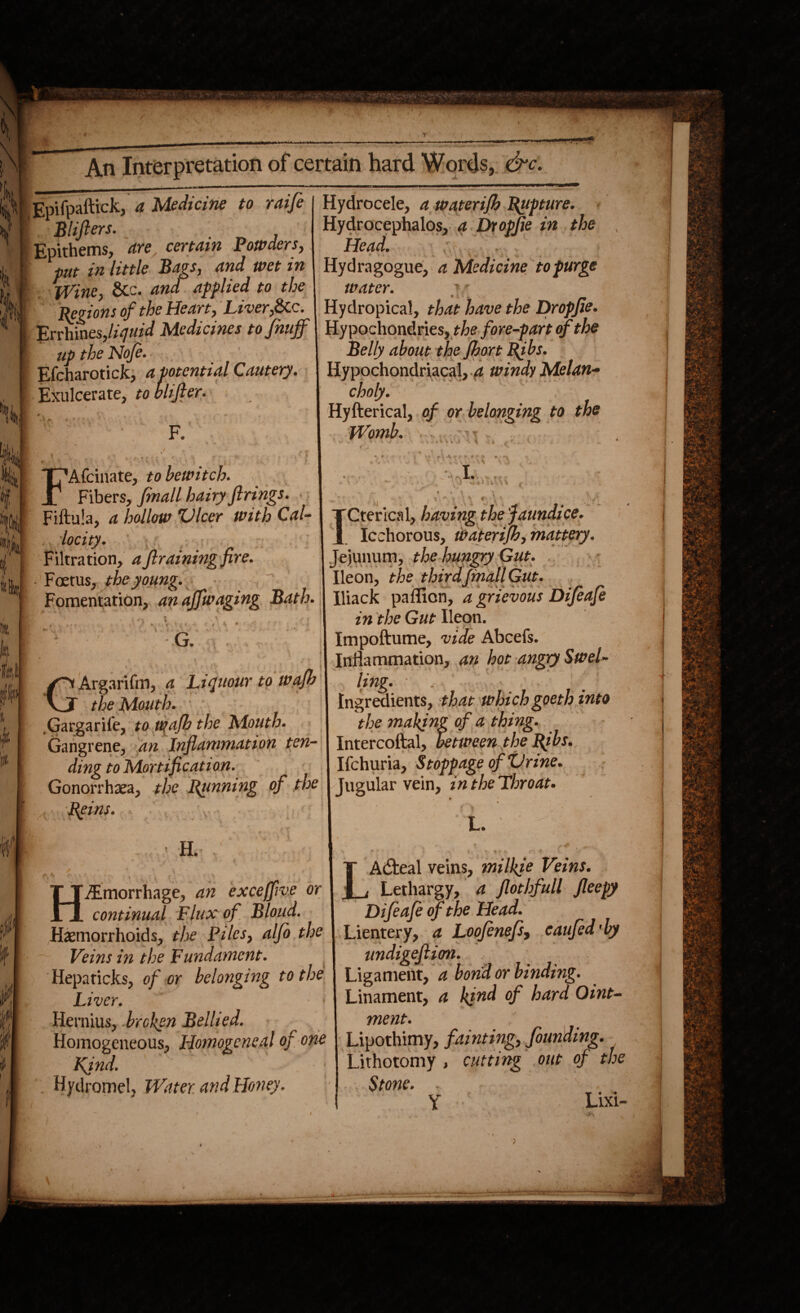 An Interpretation of certain hard Words, &c.
Epiſpaſtick, a Medicine to raiſe
Bliſters.
Epithems, are certain Powders,
put in little Bags, and wet in
Wine, &c. and applied to the
Regions of the Heart, Liver, &c.
Errhines, liquid Medicines to ſnuff
up the Noſe.
Eſcharotick, a potential Cautery.
Exulcerate, to bliſter.
F.
FAſcinate, to bewitch.
Fibers, ſmall hairy ſtrings.
Fiſtula, a hollow Ulcer with Cal-
locity.
Filtration, a ſtraining fire.
Fœtus, the young.
Fomentation, an aſſwaging Bath.
G.
GArgariſm, a Liquour to waſh
the Mouth.
Gargariſe, to waſh the Mouth.
Gangrene, an Inflammation ten-
ding to Mortification.
Gonorrhæa, the Running of the
Reins.
H.
HÆmorrhage, an exceſſive or
continual Flux of Bloud.
Hæmorrhoids, the Piles, alſo the
Veins in the Fundament.
Hepaticks, of or belonging to the
Liver.
Hernius, broken Bellied.
Homogeneous, Homogeneal of one
Kind.
Hydromel, Water and Honey.
Hydrocele, a wateriſh Rupture.
Hydrocephalos, a Dropſie in the
Head.
Hydragogue, a Medicine to purge
water.
Hydropical, that have the Dropſie.
Hypochondries, the fore-part of the
Belly about the ſhort Ribs.
Hypochondriacal, a windy Melan-
choly.
Hyſterical, of or belonging to the
Womb.
I.
ICterical, having the Jaundice.
Icchorous, wateriſh, mattery.
Jejunum, the hungry Gut.
Ileon, the third ſmall Gut.
Iliack paſſion, a grievous Diſeaſe
in the Gut Ileon.
Impoſtume, vide Abceſs.
Inflammation, an hot angry Swel-
ling.
Ingredients, that which goeth into
the making of a thing.
Intercoſtal, between the Ribs.
Iſchuria, Stoppage of Urine.
Jugular vein, in the Throat.
L.
LActeal veins, milkie Veins.
Lethargy, a ſlothfull ſleepy
Diſeaſe of the Head.
Lientery, a Looſeneſs, cauſed by
undigeſtion.
Ligament, a bond or binding.
Linament, a kind of hard Oint-
ment.
Lipothimy, fainting, ſounding.
Lithotomy, cutting out of the
Stone.
Y Lixi-